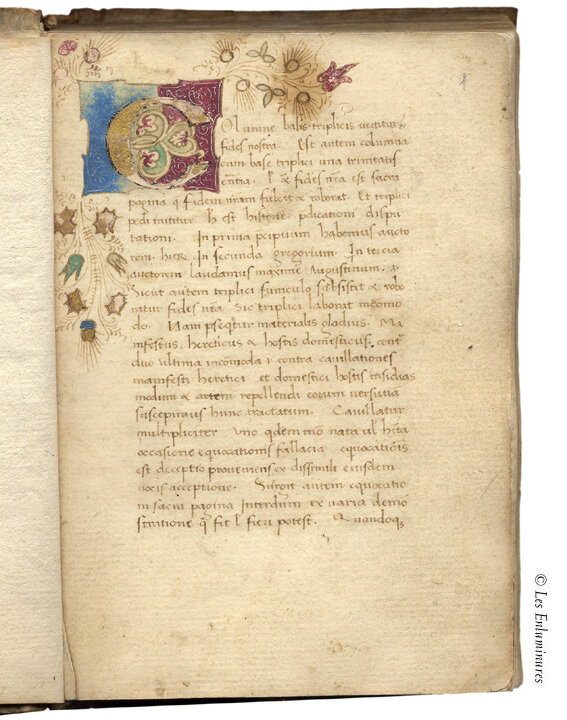 Olumne basis triplicis utitur
fides nostra. Est autem columna
cum base triplici una trinitatis
fides nr̃a est sacra
pagina q̃ fidem nr̃am fulcit & roborat. Et triplici
pedi innititur. hystorie, p̃dicationi dispu
tationi. In prima p̃cipuum habemus aucto
rem. In secunda gregorium. In tercia
auctorem laudamus maxime Augustinum.
Sicut autem triplici funiculo subsistit & robo
ratur fides nr̃a. Sic triplici laborat incomo
do. Nam p̃seq̃tur materialis gladius. Ma
nifestus, hereticus & hostis domesticus. cont̃
duo ultima incomoda & contra cavillationes
manifesti heretici et domestici hostis insidias
modum & artem repellendi eorum versutia
suscepimus hunc tractatum. Cavillatur
multipliciter. Uno q̃dem mõ nata ul' hita
occasione equocationis fallacia equocatiõis
est deceptio proveniens ex dissimili eiusdem
vocis acceptione. Surgit autem equocatio
in sacra pagina interdum ex varia demõ
stratione q̃ fit l' fieri potest. Quandoq;
© Les Enluminures